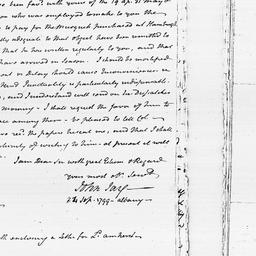 been fav.d with yours of the 19 ap. 21 May &
who was employed to make to you the
to pay for the musquets purchased at Hamburgh
adequate to that object have been remitted to
that he has written regularly to you, and that
have arrived in season. I should be mortified
or delay should cause inconvenience or
and Punctuality is particularly indispensable
and I understand will send on his Dispatches
morning. I shall request the favor of him to
among them. be pleased to tell Col.
rec.d the papers he sent me, and that I shall
of writing to him. at present it will
I am Dear Sir with great Esteem & Regard
your most ob.t Serv.t
John Jay
Sep. 1799. albany
enclosing a Letter for L.d amherst